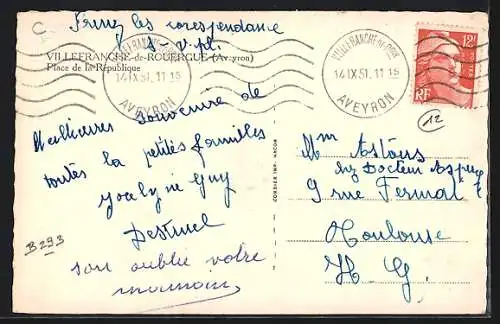 C
les correspondance
s-v-pl.
VILLEFRANCHE-de-ROUERGUE (Aveyron)
Place de la République
VILLEFRANCHE-DE-RGUE
14 IX 51. 11 15
AVEYRON
VILLEFRANCHE-DE-RGUE
14 IX 51. 11 15
AVEYRON
12F
RF
12
Meilleures souvenire de
toutes la petits familles
Jocelyne Guy
B293
son oublie votre
mamain,
CORDIER IMP.
Mm Astous
chz Docteur
9 rue Fermat
Toulouse
H G.